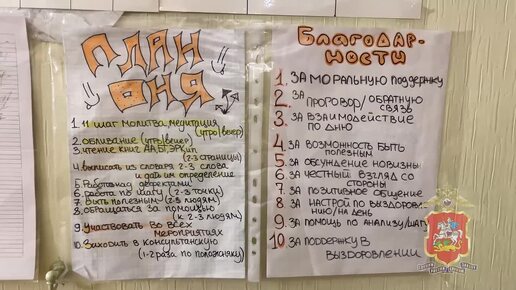 ПЛАН
ДНЯ
1. 11 шаг молитва, медитация
(утро/вечер)
2. обнимание (утро/вечер)
3. чтение книг АА, БТ, ЭР и тп.
(2-3 страницы)
4. выписать из словаря 2-3 слова
и дать им определение
5. Работа над дефектами
6. работа по шагу (2-3 точки)
7. Быть полезным (2-3 людям)
8. обращаться за помощью
(к 2-3 людям)
9. Участвовать во всех
мероприятиях
10. Заходить в консультанскую
(1-2 раза по положняку)
БЛАГОДАР-
НОСТИ
1. ЗА МОРАЛЬНУЮ ПОДДЕРЖКУ
2. ЗА ПРОГОВОР/ОБРАТНУЮ
СВЯЗЬ
3. ЗА ВЗАИМОДЕЙСТВИЕ
ПО ДНЮ
4. ЗА ВОЗМОНОСТЬ БЫТЬ
ПОЛЕЗНЫМ
5. ЗА ОБСУЖДЕНИЕ НОВИЗНЫ
6. ЗА ЧЕСТНЫЙ ВЗГЛЯД СО
СТОРОНЫ
7. ЗА ПОЗИТИВНОЕ ОБЩЕНИЕ
8. ЗА НАСТРОЙ ПО ВЫЗДОРОВЛЕ-
НИЮ/НА ДЕНЬ
9. ЗА ПОМОЩЬ ПО АНАЛИЗУ/ШАГУ
10. ЗА ПОДДЕРЖКУ В
ВЫЗДОРОВЛЕНИИ